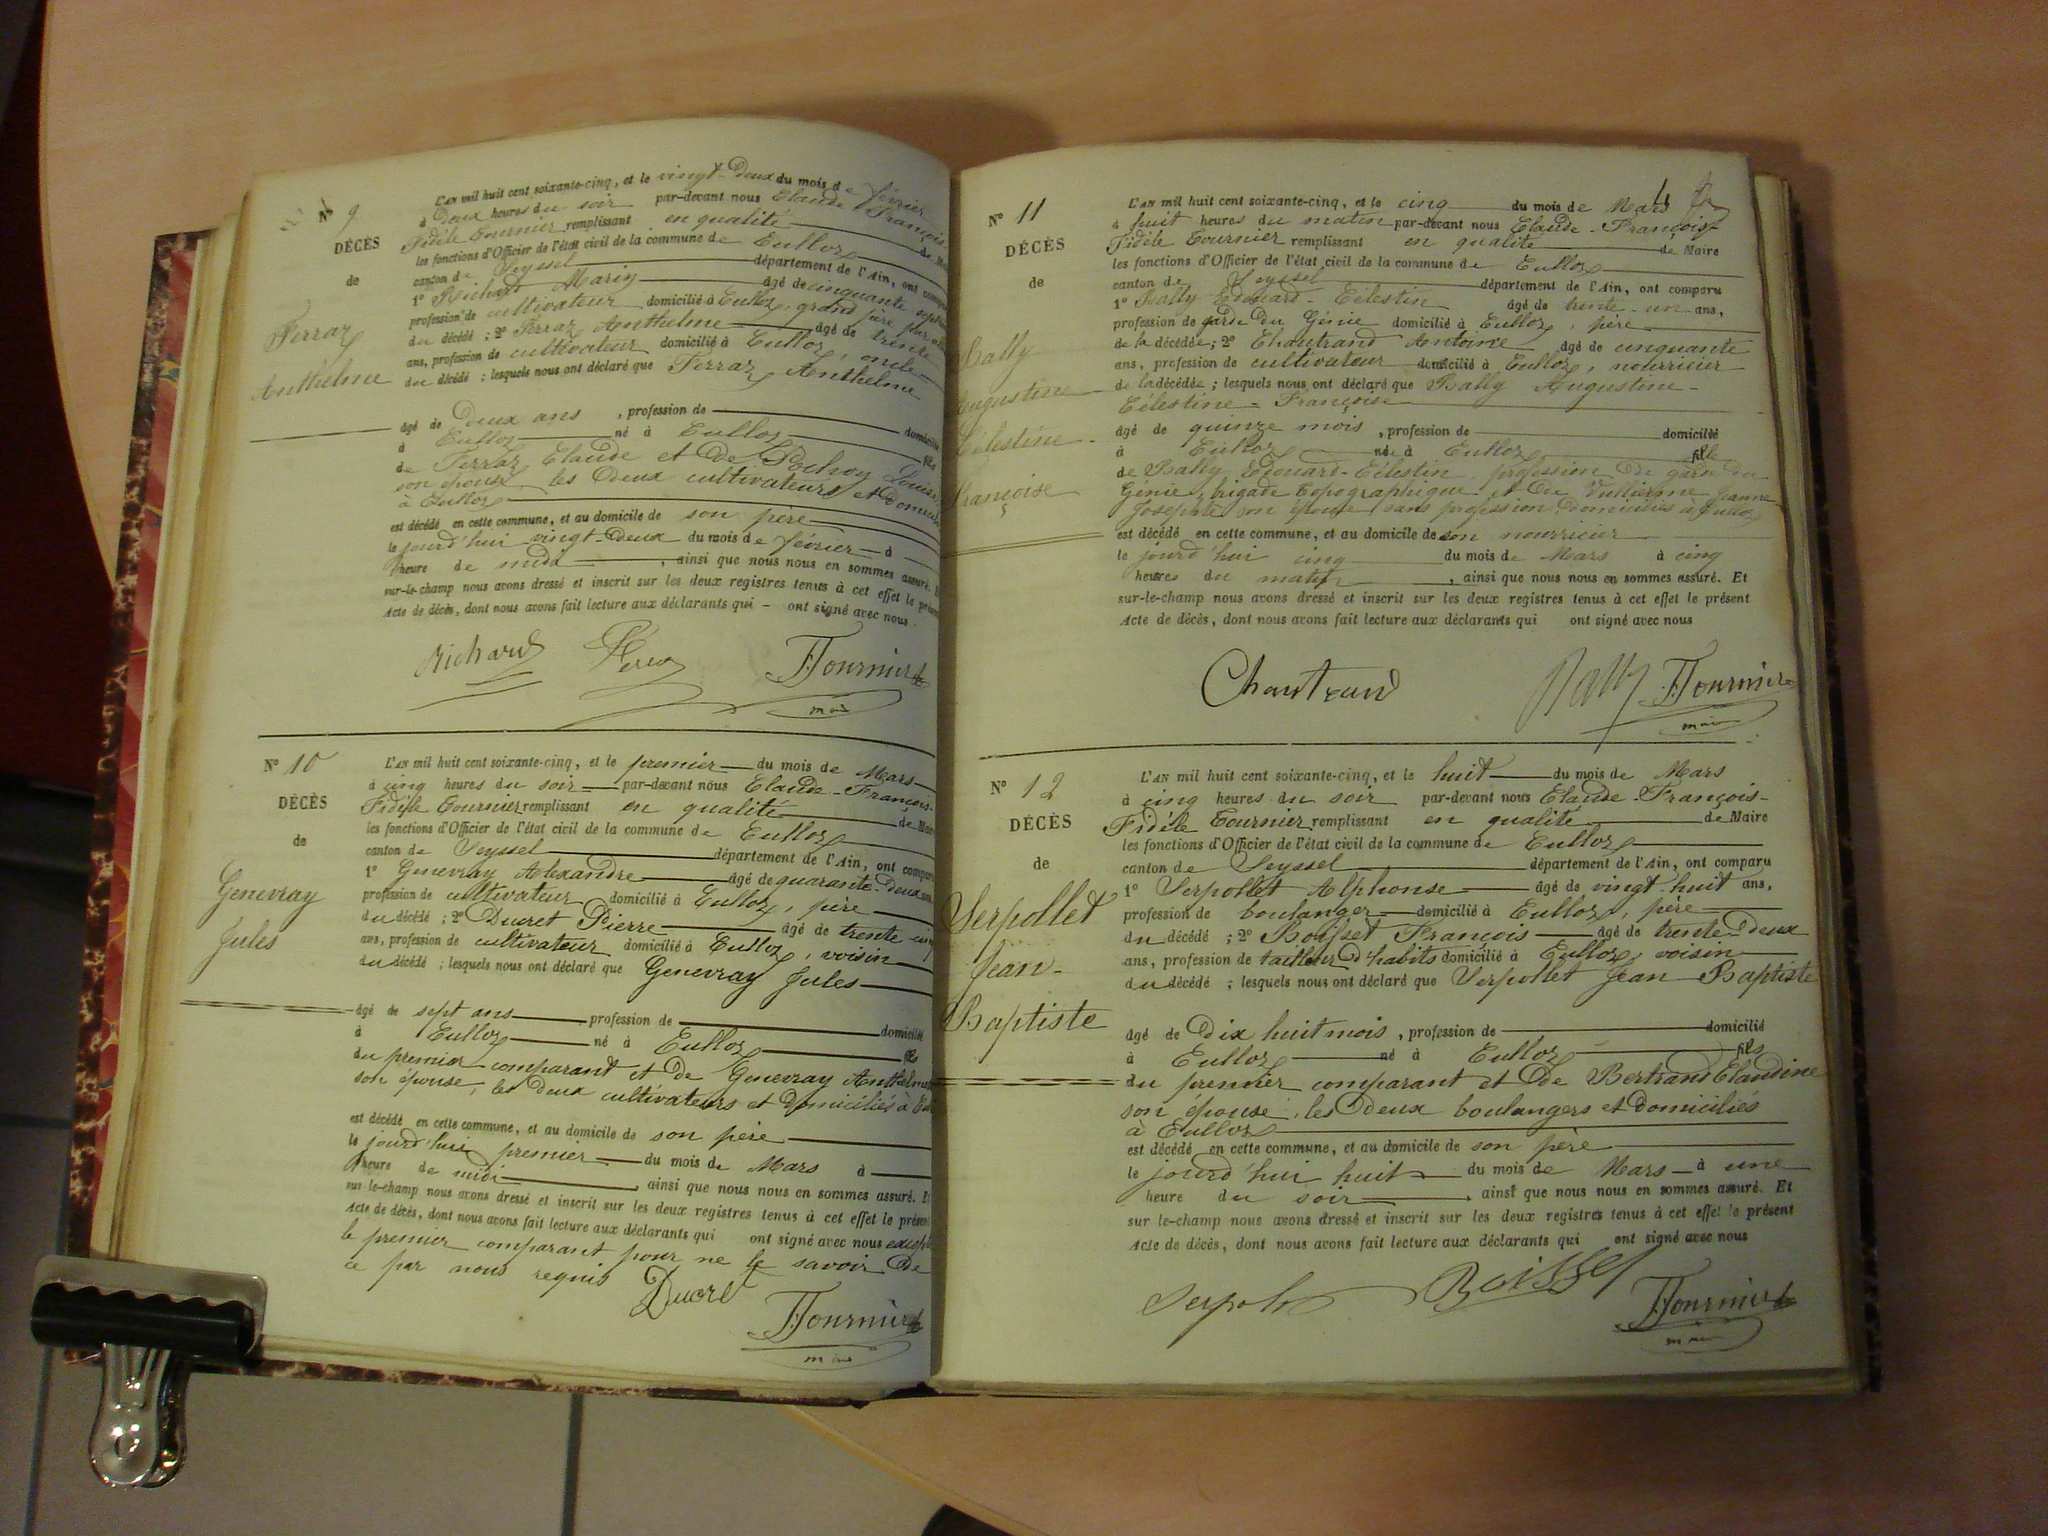 N° 9
DÉCÈS
de
Ferraz
Anthelme
L'AN mil huit cent soixante-cinq, et le vingt-deux du mois de février
à deux heures du soir par-devant nous Claude-François-
Fidèle Tournier remplissant en qualité de Maire
les fonctions d'Officier de l'état civil de la commune de Culloz
canton de Seyssel département de l'Ain, ont comparu
1° Richard Marin âgé de cinquante sept
profession de cultivateur domicilié à Culloz, grand père
du décédé ; 2° Ferraz Anthelme âgé de trente
ans, profession de cultivateur domicilié à Culloz, oncle
du décédé ; lesquels nous ont déclaré que Ferraz Anthelme
âgé de deux ans , profession de domicilié
à Culloz né à Culloz fils
de Ferraz Claude et de Louise
son épouse, les deux cultivateurs et domiciliés
à Culloz
est décédé en cette commune, et au domicile de son père
le jourd'hui vingt-deux du mois de février à
heure de midi , ainsi que nous nous en sommes assuré. Et
sur-le-champ nous avons dressé et inscrit sur les deux registres tenus à cet effet le présent
Acte de décès, dont nous avons fait lecture aux déclarants qui - ont signé avec nous.
Richard Ferraz F Tournier
maire
N° 10
DÉCÈS
de
Genevray
Jules
L'AN mil huit cent soixante-cinq, et le premier du mois de Mars
à cinq heures du soir par-devant nous Claude-François-
Fidèle Tournier remplissant en qualité de Maire
les fonctions d'Officier de l'état civil de la commune de Culloz
canton de Seyssel département de l'Ain, ont comparu
1° Genevray Alexandre âgé de quarante-deux ans,
profession de cultivateur domicilié à Culloz, père
du décédé ; 2° Ducret Pierre âgé de trente cinq
ans, profession de cultivateur domicilié à Culloz, voisin
du décédé ; lesquels nous ont déclaré que Genevray Jules
âgé de sept ans profession de domicilié
à Culloz né à Culloz fils
du premier comparant et de Genevray Anthelmette
son épouse, les deux cultivateurs et domiciliés à Culloz
est décédé en cette commune, et au domicile de son père
le jourd'hui premier du mois de Mars à
heure de midi , ainsi que nous nous en sommes assuré. Et
sur-le-champ nous avons dressé et inscrit sur les deux registres tenus à cet effet le présent
Acte de décès, dont nous avons fait lecture aux déclarants qui ont signé avec nous excepté
le premier comparant pour ne le savoir de
ce par nous requis
Ducret
F Tournier
maire
N° 11
DÉCÈS
de
Bally
Augustine
Célestine-
Françoise
L'AN mil huit cent soixante-cinq, et le cinq du mois de Mars
à huit heures du matin par-devant nous Claude-François-
Fidèle Tournier remplissant en qualité de Maire
les fonctions d'Officier de l'état civil de la commune de Culloz
canton de Seyssel département de l'Ain, ont comparu
1° Bally Edouard-Célestin âgé de trente-un ans,
profession de garde du Génie domicilié à Culloz, père
de la décédée ; 2° Chautrand Antoine âgé de cinquante
ans, profession de cultivateur domicilié à Culloz, nourricier
de la décédée ; lesquels nous ont déclaré que Bally Augustine-
Célestine-Françoise
âgé de quinze mois , profession de domicilié
à Culloz née à Culloz fille
de Bally Edouard-Célestin, profession de garde du
Génie, brigade topographique et de Vullierme Jeanne
Josephte son épouse, sans profession domiciliés à Culloz
est décédé en cette commune, et au domicile de son nourricier
le jourd'hui cinq du mois de Mars à cinq
heures du matin , ainsi que nous nous en sommes assuré. Et
sur-le-champ nous avons dressé et inscrit sur les deux registres tenus à cet effet le présent
Acte de décès, dont nous avons fait lecture aux déclarants qui ont signé avec nous
Chautrand Bally F Tournier
maire
N° 12
DÉCÈS
de
Serpollet
Jean-
Baptiste
L'AN mil huit cent soixante-cinq, et le huit du mois de Mars
à cinq heures du soir par-devant nous Claude-François-
Fidèle Tournier remplissant en qualité de Maire
les fonctions d'Officier de l'état civil de la commune de Culloz
canton de Seyssel département de l'Ain, ont comparu
1° Serpollet Alphonse âgé de vingt-huit ans,
profession de boulanger domicilié à Culloz, père
du décédé ; 2° Boisset François âgé de trente-deux
ans, profession de tailleur d'habits domicilié à Culloz, voisin
du décédé ; lesquels nous ont déclaré que Serpollet Jean Baptiste
âgé de dix huit mois , profession de domicilié
à Culloz né à Culloz fils
du premier comparant et de Bertrand Claudine
son épouse, les deux boulangers et domiciliés
à Culloz
est décédé en cette commune, et au domicile de son père
le jourd'hui huit du mois de Mars à une
heure du soir , ainsi que nous nous en sommes assuré. Et
sur le-champ nous avons dressé et inscrit sur les deux registres tenus à cet effet le présent
Acte de décès, dont nous avons fait lecture aux déclarants qui ont signé avec nous
Serpollet Boisset F Tournier
maire